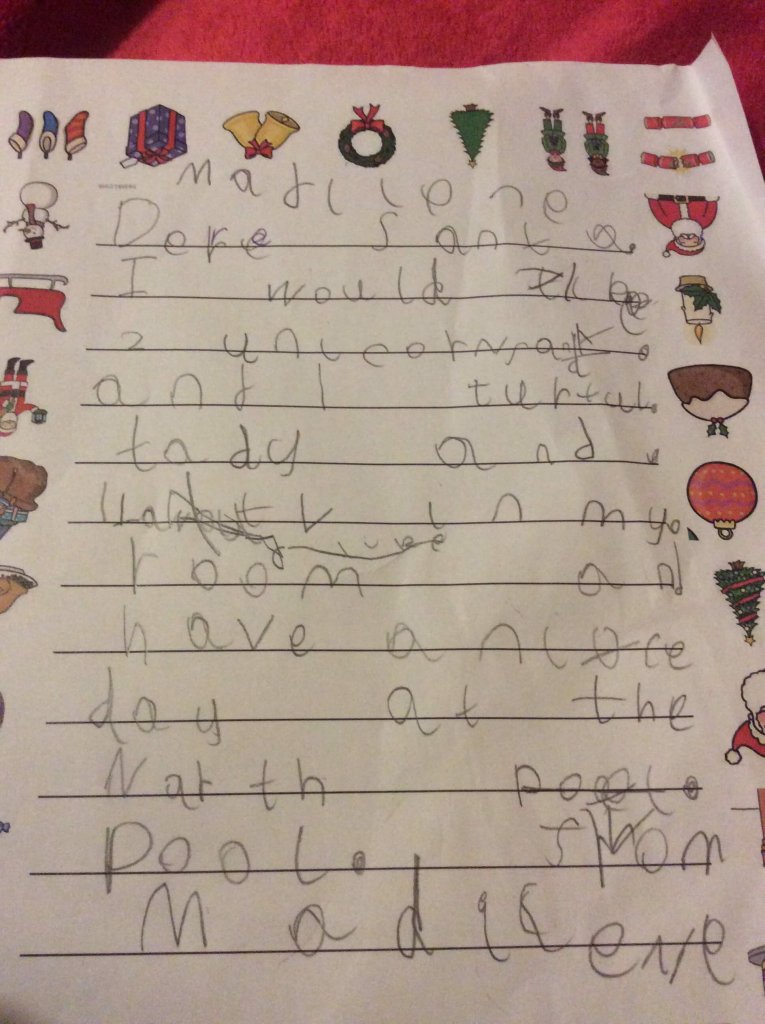 Madilene
Dere Santa.
I would like
2 unicorns
and 1 turtul.
tady and.
in my.
room and
have a nice
day at the
Narth
Pool. from
Madilene